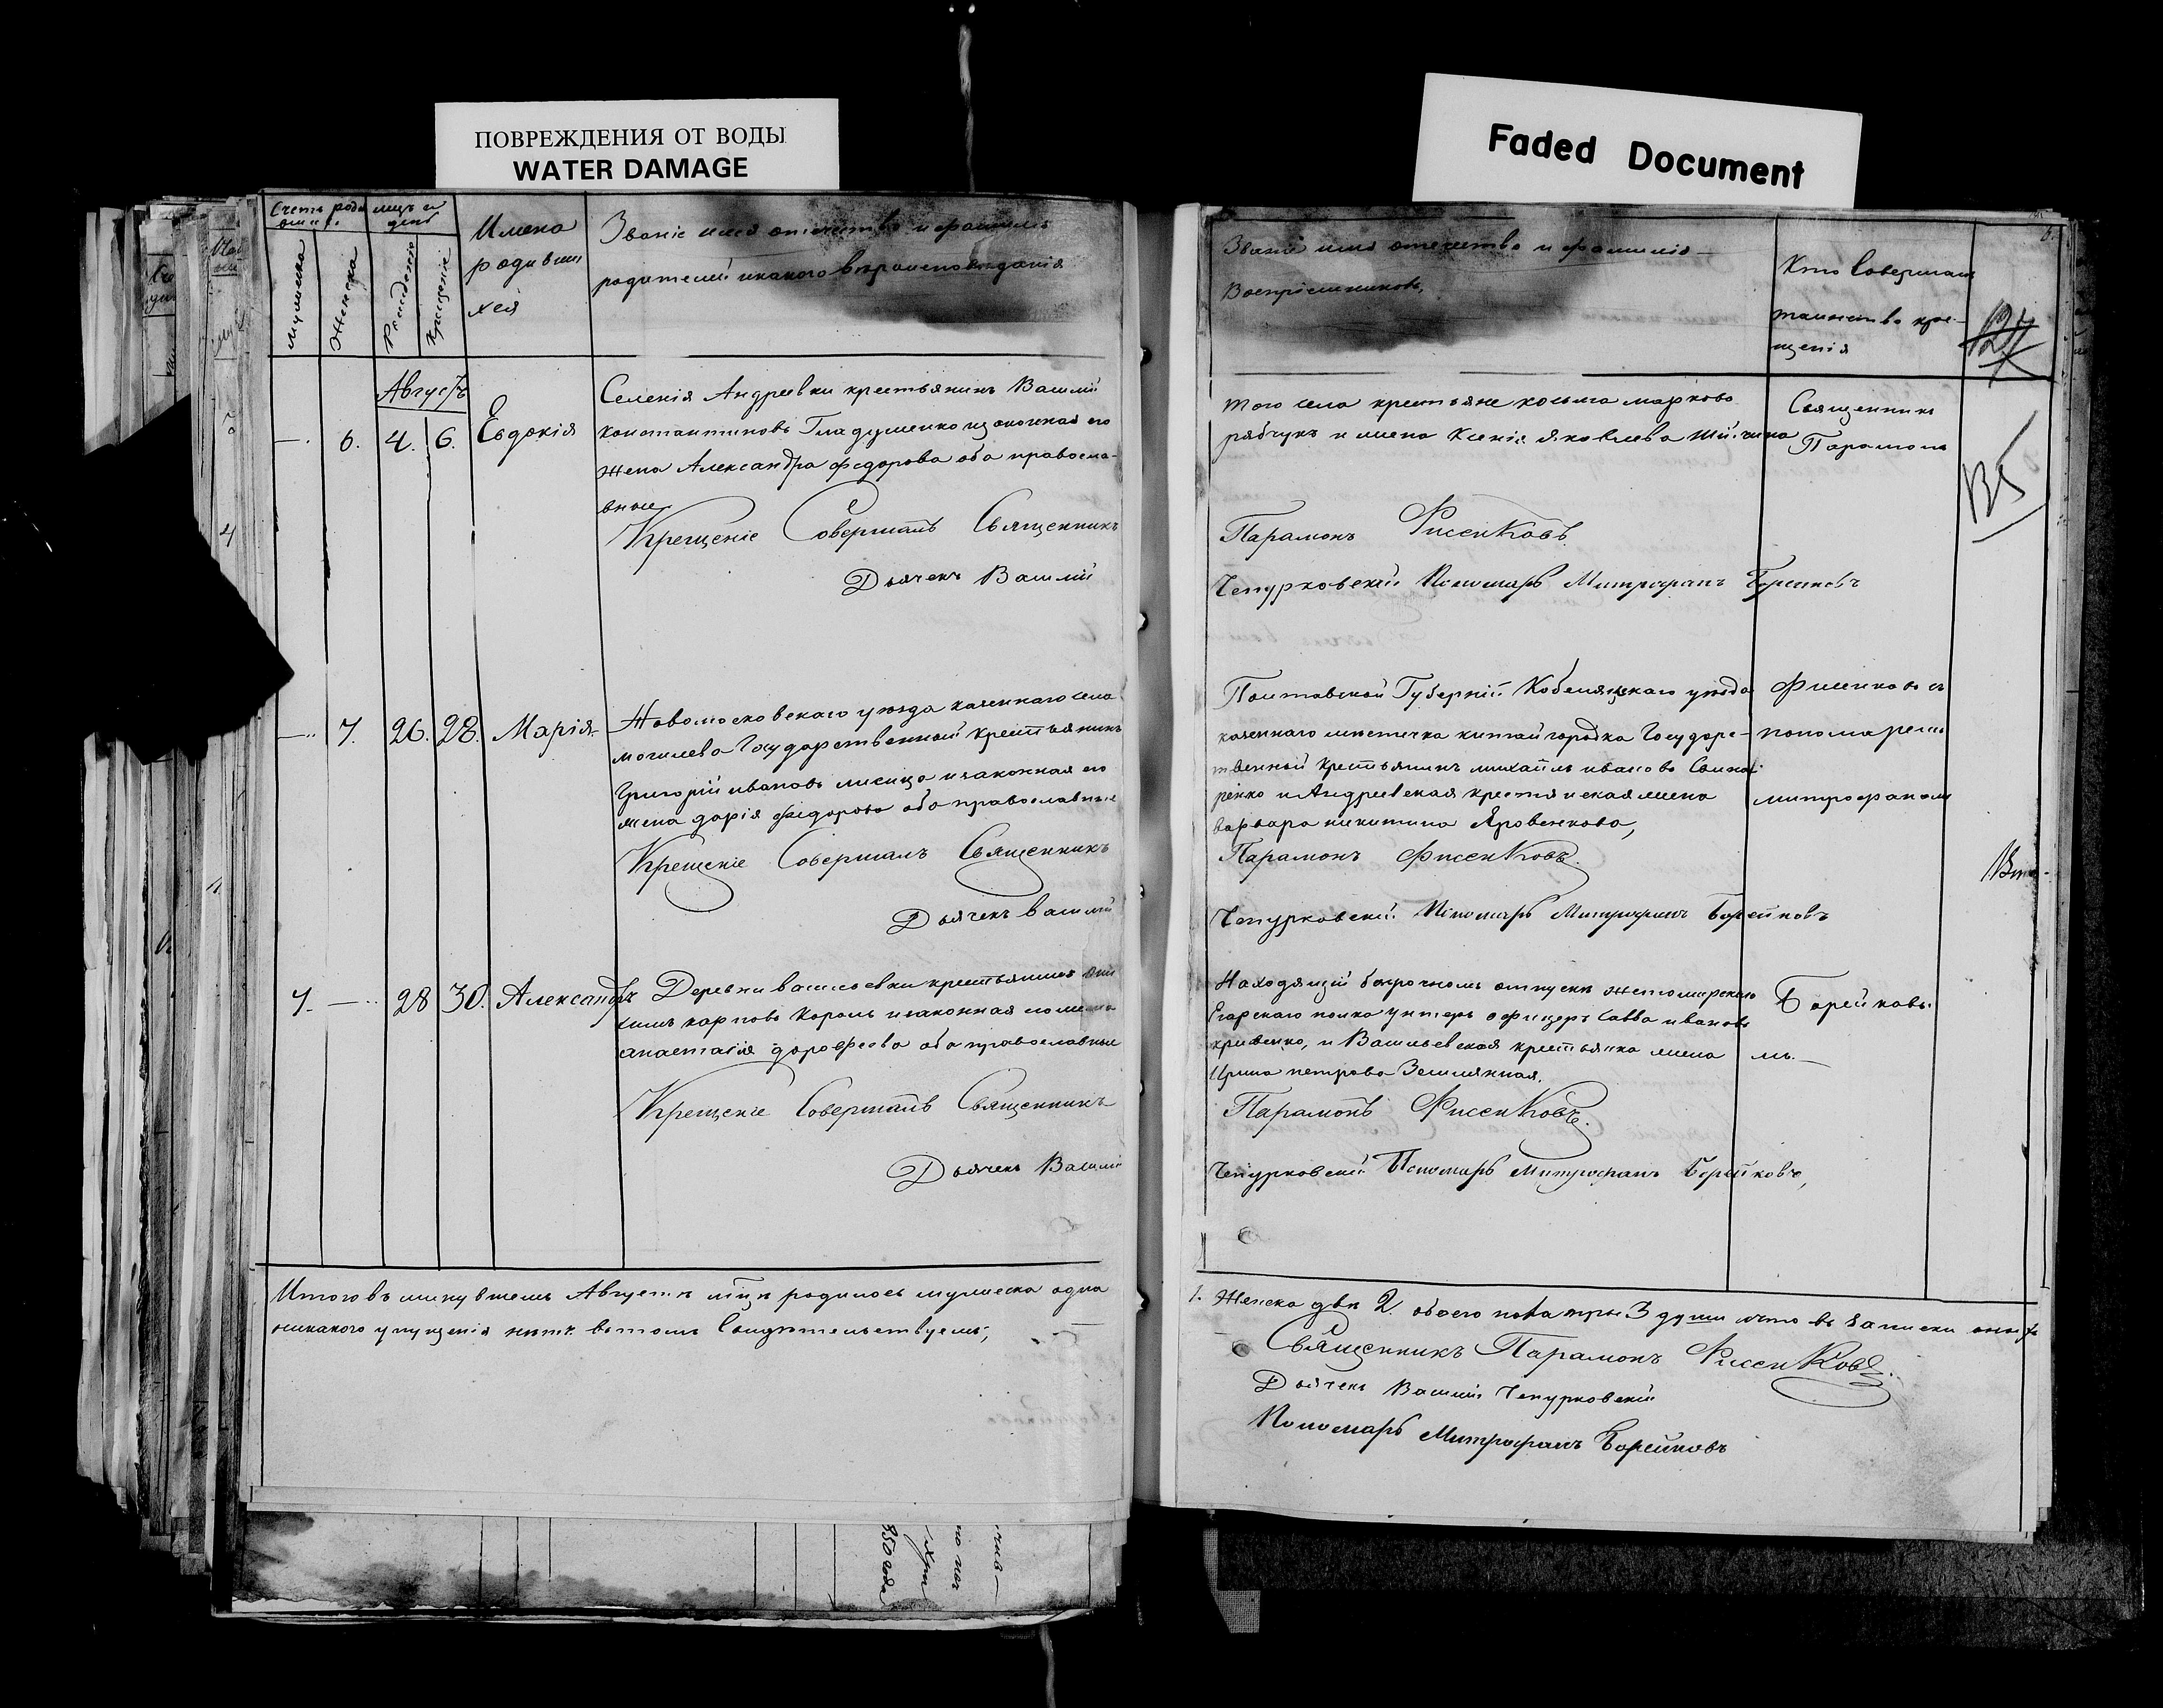 ПОВРЕЖДЕНИЯ ОТ ВОДЫ
WATER DAMAGE
Faded Document
Счетъ роди
мѣц и
день
мужеска
Женска
Рожденіе
Крещеніе
Имена
родивши
хся
Званіе имя отечество и фамилія
родителей и какого вѣроисповѣданія
Августъ
6.
4.
6.
Евдокія
Селенія Андреевки крестьянинъ Василій
Константиновъ Гладушенко и законная его
жена Александра Федорова оба правосла-
вные
Крещеніе Совершалъ Священникъ
Дьячекъ Василій
7.
26.
28.
Марія
Новомосковскаго уѣзда казеннаго села
могилева Государственный крестьянинъ
Григорій ивановъ лисица и законная его
жена дарія федорова оба православные
Крещеніе Совершалъ Священникъ
Дьячекъ василій
28
30.
Александръ
Деревни васильевки крестьянинъ
карповъ Король и законная его жена
анастасія дорофеева оба православные
Крещеніе Совершалъ Священникъ
Дьячекъ Василій
Итого въ минувшемъ Августѣ мцѣ родилось мужеска одна
никакого упущенія нѣтъ вътомъ Свидѣтельствуемъ,
850 года
Званіе имя отечество и фамилія
Воспріемниковъ.
Кто Совершалъ
таинство кре-
щенія
124
того села крестьяне козьма марковъ
рябчукъ и жена Ксенія Яковлева
Священникъ
Парамонъ
Парамонъ Фисенковъ.
Чепурковскій Пономарь Митрофанъ Борейковъ
Полтавской Губерніи Кобеляцкаго уѣзда
казеннаго мѣстечка китай городка Государс-
твенный крестьянинъ михаилъ ивановъ
и Андреевская жена
варвара никитина Яровенкова,
Фисенковъ съ
пономаремъ
митрофаномъ
Парамонъ Фисенковъ.
Чепурковскій Пономарь Митрофанъ Борейковъ
Находящій безсрочномъ отпуске житомирскаго
Егарскаго полка унтеръ офицеръ Савва ивановъ
кривенко, и Васильевская крестьянка жена
Ирина петрова Землянная.
Борейковы
мъ.
Парамонъ Фисенковъ.
Чепурковскій Пономарь Митрофанъ Борейковъ,
1. Женска двѣ 2. обоего пола три 3 души что въ записки оныхъ
Священникъ Парамонъ Фисенковъ.
Дьячекъ Василій Чепурковскій
Пономарь Митрофанъ Борейковъ